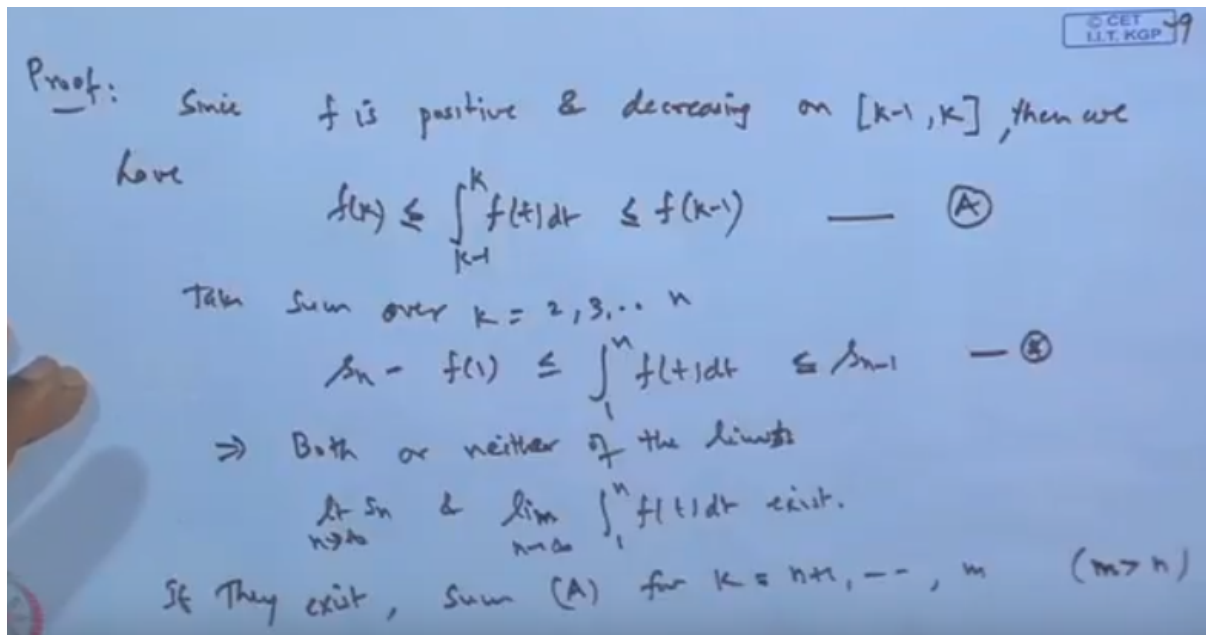 © CET
I.I.T. KGP
Proof: Since f is positive & decreasing on [k-1, k], then we
have
f(k) ≤ ∫_{k-1}^{k} f(t)dt ≤ f(k-1) — Ⓐ
Take sum over k = 2, 3, .. n
s_n - f(1) ≤ ∫_1^n f(t)dt ≤ s_{n-1} — Ⓑ
⇒ Both or neither of the limits
lt_{n→∞} s_n & lim_{n→∞} ∫_1^n f(t)dt exist.
If They exist, sum (A) for k = n+1, ---, m (m > n)